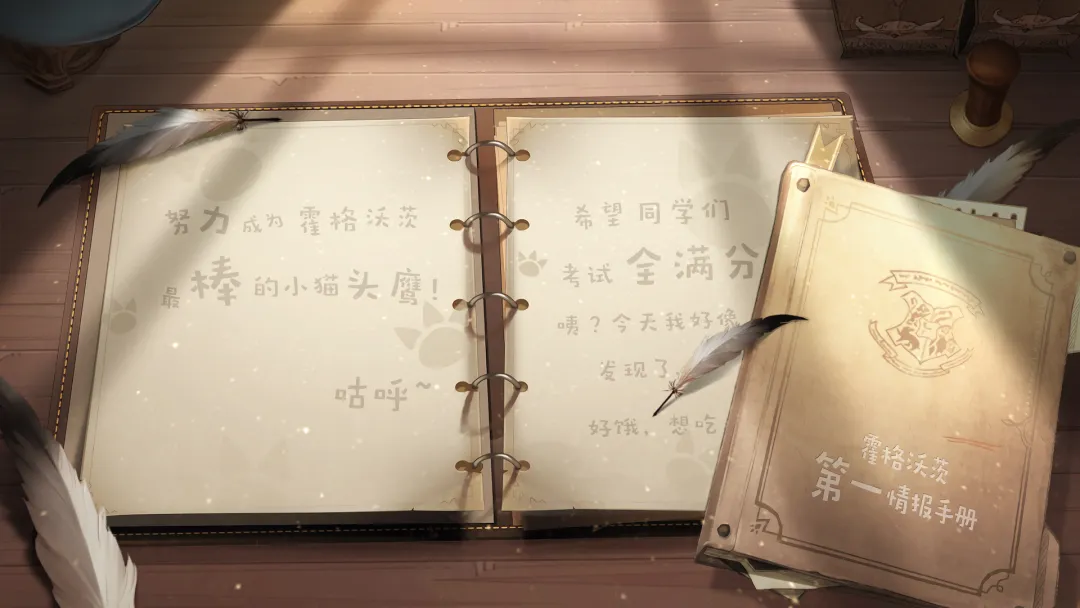 努力成为霍格沃茨
最棒的小猫头鹰！
咕呼~
希望同学们
考试全满分
咦？今天我好像
发现了
好饿，想吃
霍格沃茨
第一情报手册